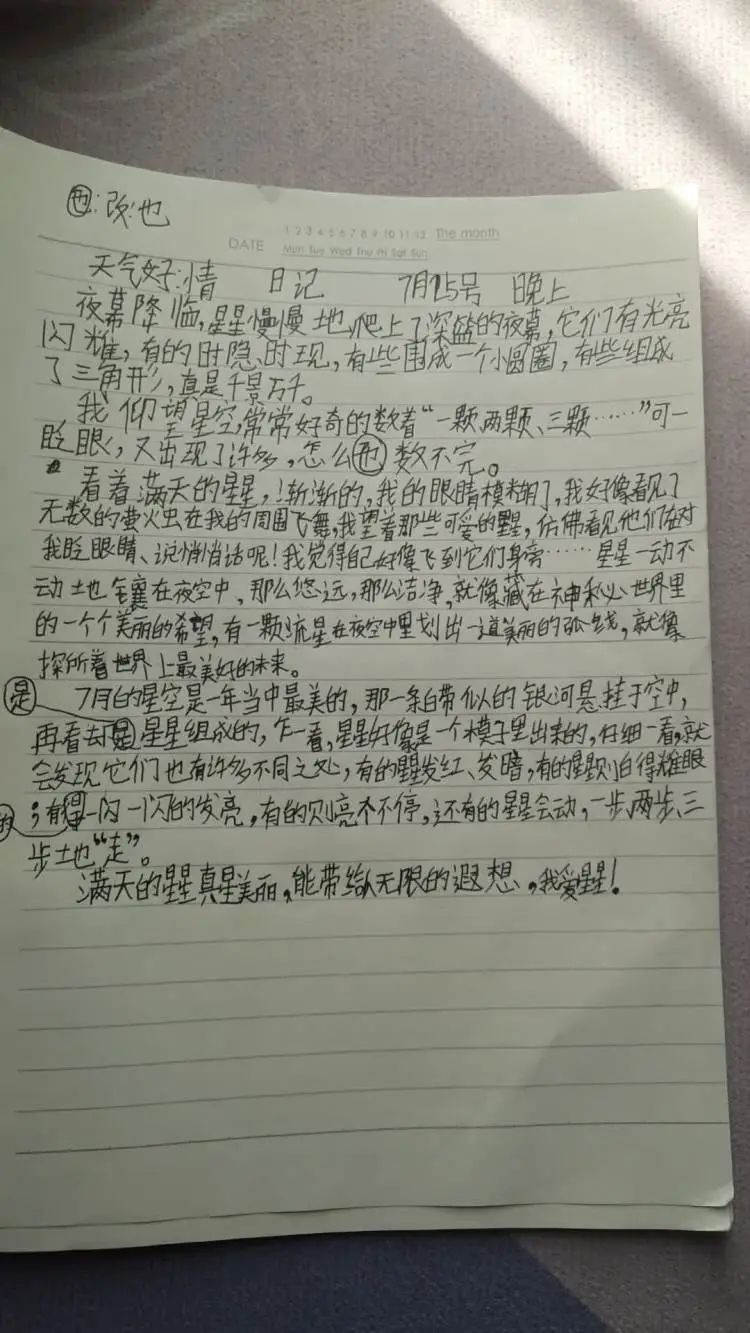 也:改:也
1 2 3 4 5 6 7 8 9 10 11 12 The month
DATE Mun Tue Wed Thu Fri Sat Sun
天气好:情 日记 7月15号 晚上
夜幕降临,星星慢慢地爬上了深蓝的夜幕,它们有光亮
闪耀,有的时隐时现,有些围成一个小圆圈,有些组成
了三角形,真是千景万千。
我仰望星空,常常好奇的数着“一颗、两颗、三颗……”可一
眨眼,又出现了许多,怎么也数不完。
看着满天的星星,渐渐的,我的眼睛模糊了,我好像看见了
无数的萤火虫在我的周围飞舞,我望着那些可爱的星星,仿佛看见他们在对
我眨眼睛、说悄悄话呢!我觉得自己好像飞到它们身旁……星星一动不
动地镶在夜空中,那么悠远,那么洁净,就像藏在神秘世界里
的一个个美丽的希望,有一颗流星在夜空中里划出一道美丽的弧线,就像
探所着世界上最美好的未来。
是 7月的星空是一年当中最美的,那一条白带似的银河悬挂于空中,
再看去是星星组成的,乍一看,星星好像是一个模子里出来的,仔细一看,就
会发现它们也有许多不同之处,有的星星发红、发暗,有的星星则白得耀眼
的;有得一闪一闪的发亮,有的则亮个不停,还有的星星会动,一步、两步、三
步地“走”。
满天的星星真星美丽,能带给人无限的遐想,我爱星星!